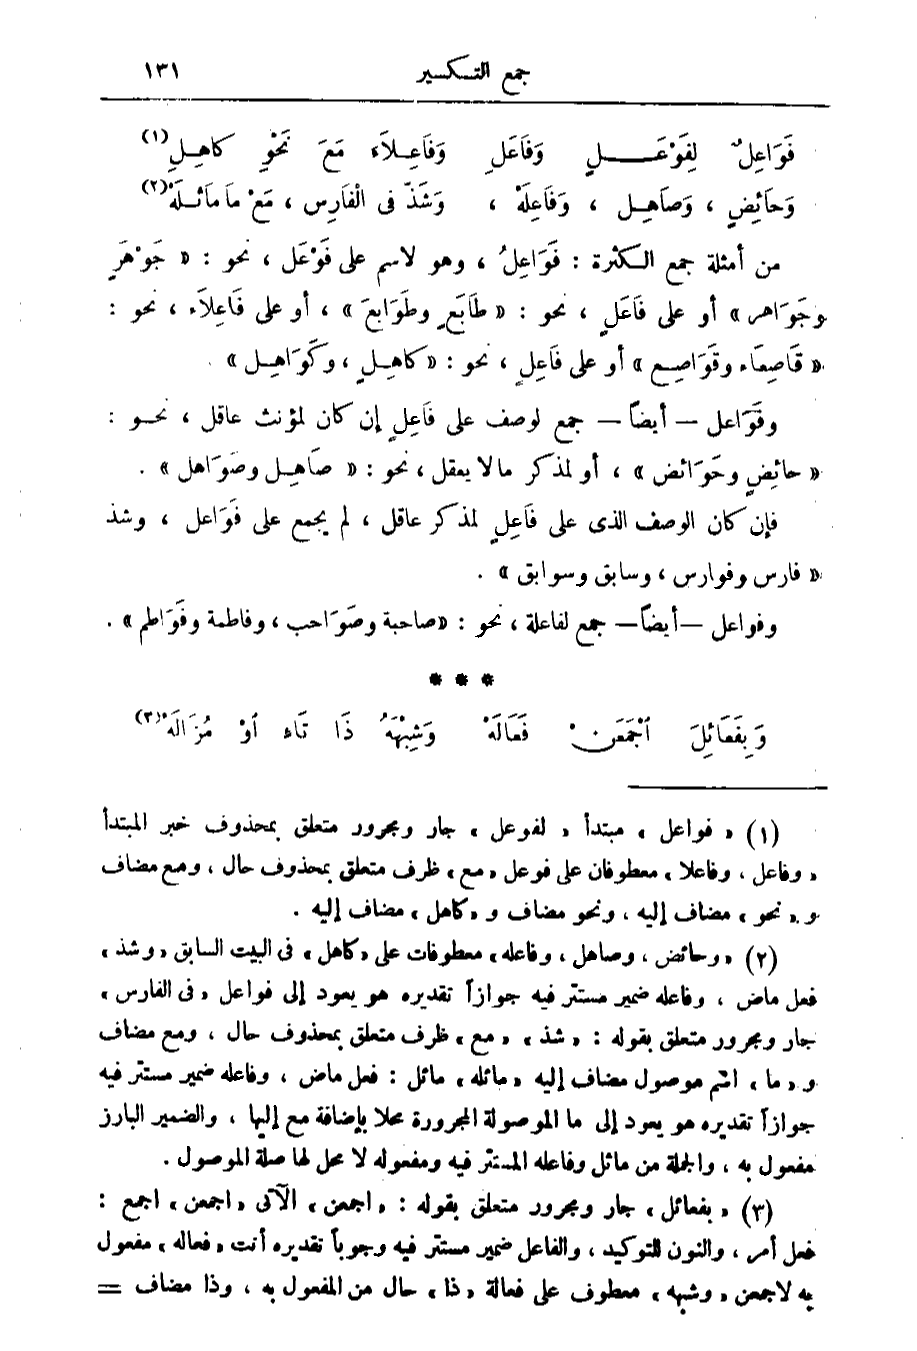 جمع التكسير ١٣١
فَوَاعِلٌ لِفَوْعَلٍ وَفَاعَلِ وَفَاعِلاَءَ مَعَ نَحْوِ كاهِلِ (١)
وَحَائِضٍ ، وَصَاهِلٍ ، وَفَاعِلَهْ ، وَشَذَّ فى الْفَارِسِ ، مَعْ مَا مَاثَلَهْ (٢)
من أمثلة جمع الكثرة : فَوَاعِلُ ، وهو لاسم على فَوْعَل ، نحو : « جَوْهَرٍ
وجَوَاهر » أو على فَاعَلٍ ، نحو : « طَابَعٍ وطَوَابعَ » ، أو على فَاعِلاَء ، نحو :
« قَاصِعَاء وقَوَاصِع » أو على فَاعِلٍ ، نحو : « كاهِلٍ ، وكَوَاهِل » .
وفَوَاعل — أيضاً — جمع لوصف على فَاعِلٍ إن كان لمؤنث عاقل ، نحو :
« حائِضٍ وحَوَائض » ، أو لمذكر ما لا يعقل ، نحو : « صَاهِل وصَوَاهل » .
فإن كان الوصف الذى على فَاعِلٍ لمذكر عاقل ، لم يجمع على فَوَاعل ، وشذ
« فارس وفوارس ، وسابق وسوابق » .
وفواعل — أيضاً — جمع لفاعلة ، نحو : « صاحبة وصَوَاحب ، وفاطمة وفَوَاطم » .
* * *
وَبِفَعَائِلَ ٱجْمَعَنْ فَعَالَهْ وَشِبْهَهُ ذَا تَاءِ ٱوْ مُزَالَهْ (٣)
(١) « فواعل » مبتدأ « لفوعل » جار ومجرور متعلق بمحذوف خبر المبتدأ
« وفاعل ، وفاعلا » معطوفان على فوعل « مع » ظرف متعلق بمحذوف حال ، ومع مضاف
و « نحو » مضاف إليه ، ونحو مضاف و « كاهل » مضاف إليه .
(٢) « وحائض ، وصاهل ، وفاعله » معطوفات على « كاهل » فى البيت السابق « وشذ »
فعل ماض ، وفاعله ضمير مستتر فيه جوازاً تقديره هو يعود إلى فواعل « فى الفارس »
جار ومجرور متعلق بقوله : « شذ » « مع » ظرف متعلق بمحذوف حال ، ومع مضاف
و « ما » اسم موصول مضاف إليه « ماثله » ماثل : فعل ماض ، وفاعله ضمير مستتر فيه
جوازاً تقديره هو يعود إلى ما الموصولة المجرورة محلا بإضافة مع إليها ، والضمير البارز
مفعول به ، والجملة من ماثل وفاعله المستتر فيه ومفعوله لا محل لها صلة الموصول .
(٣) « بفعائل » جار ومجرور متعلق بقوله : « اجمعن » الآتى « اجمعن » اجمع :
فعل أمر ، والنون للتوكيد ، والفاعل ضمير مستتر فيه وجوباً تقديره أنت « فعاله » مفعول
به لاجمعن « وشبهه » معطوف على فعالة « ذا » حال من المفعول به ، وذا مضاف =